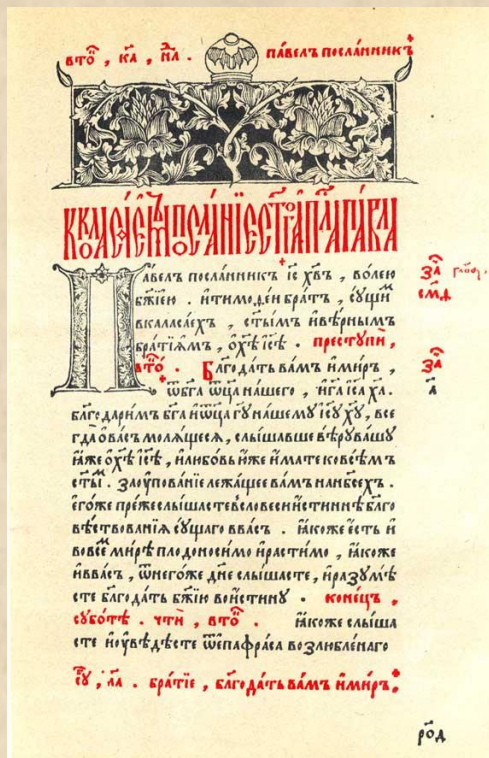 вто҇ , к҃а , н҃л . павелъ посланникъ
к коласаемъ посланїе ст҃го ап҃ла павла
Павелъ посланникъ і҆с х҃въ , волею
б҃жїею . и҆тимоѳеи братъ , сꙋщи҇
вкаласаехъ , ст҃ымъ и҆вѣрнымъ
братїамъ , ѡ҆х҃ѣ і҆с҃ѣ . престꙋпи ,
вто҇ . Благодать вамъ и҆миръ ,
ѿб҃га ѿц҃а на́шего , и҆г҃а і҆с҃а х҃а .
благодаримъ б҃га и҆ѿц҃а г҃ꙋ нашемꙋ і҆с҃ꙋ х҃ꙋ , все
гда ѡ҆васъ молящеся , слышавше вѣрꙋ вашꙋ
ꙗ҆же ѡ҆х҃ѣ і҆с҃ѣ , и҆любовь ю҆же и҆мате ковсѣмъ
ст҃ы҇ . заꙋпованїе лежащее вамъ нанб҃сехъ .
е҆гоже преже слышасте в словеси и҆стиннѣ бл҃го
вѣствованїя сꙋщаго ввасъ . ꙗ҆коже є҆сть и҆
вовсе҇ мирѣ плодоносимо и҆растимо , ꙗ҆коже
и҆ввасъ , ѿнегоже дн҃е слышасте , и҆разꙋмѣ
сте благодать б҃жїю вои҆стинꙋ . конецъ ,
сꙋботѣ . чти҇ , вто҇ . ꙗ҆коже слыша
сте и҆ꙋвѣдѣсте ѿепафраса возлюбленаго
братїе , благодать вамъ и҆миръ .
за҇
см҃д
за҇
а
ро҇д